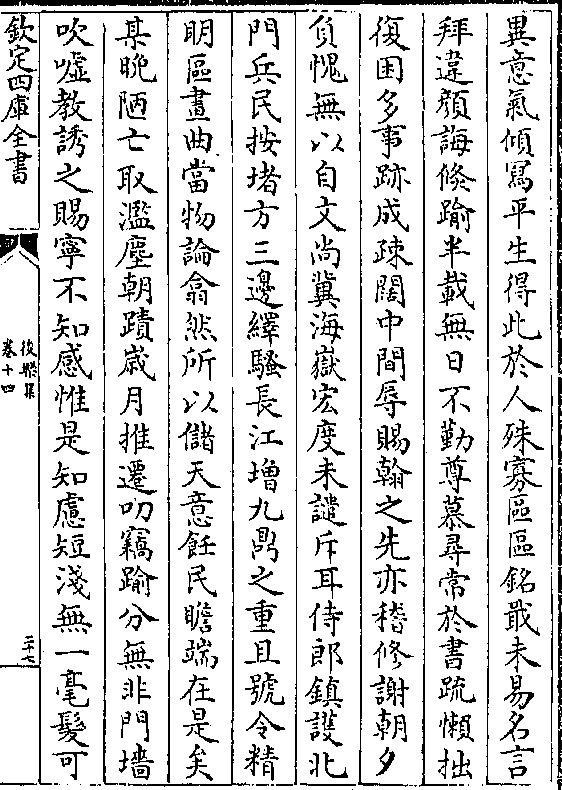 異意氣傾寫平生得此於人殊寡區區銘戢未易名言
拜違顔誨倐踰半載無日不勤尊慕尋常於書疏懶拙
復困多事跡成疎闊中間辱賜翰之先亦稽修謝朝夕
負愧無以自文尚冀海嶽宏度未譴斥耳侍郎鎮護北
門兵民按堵方三邊繹騷長江增九鼎之重且號令精
明區畫曲當物論翕然所以儲天意飪民瞻端在是矣
某晩陋亡取濫塵朝蹟嵗月推遷叨竊踰分無非門墻
吹嘘教誘之賜寧不知感惟是知慮短淺無一毫髮可
欽定四庫全書
後樂集
卷十四
二十七